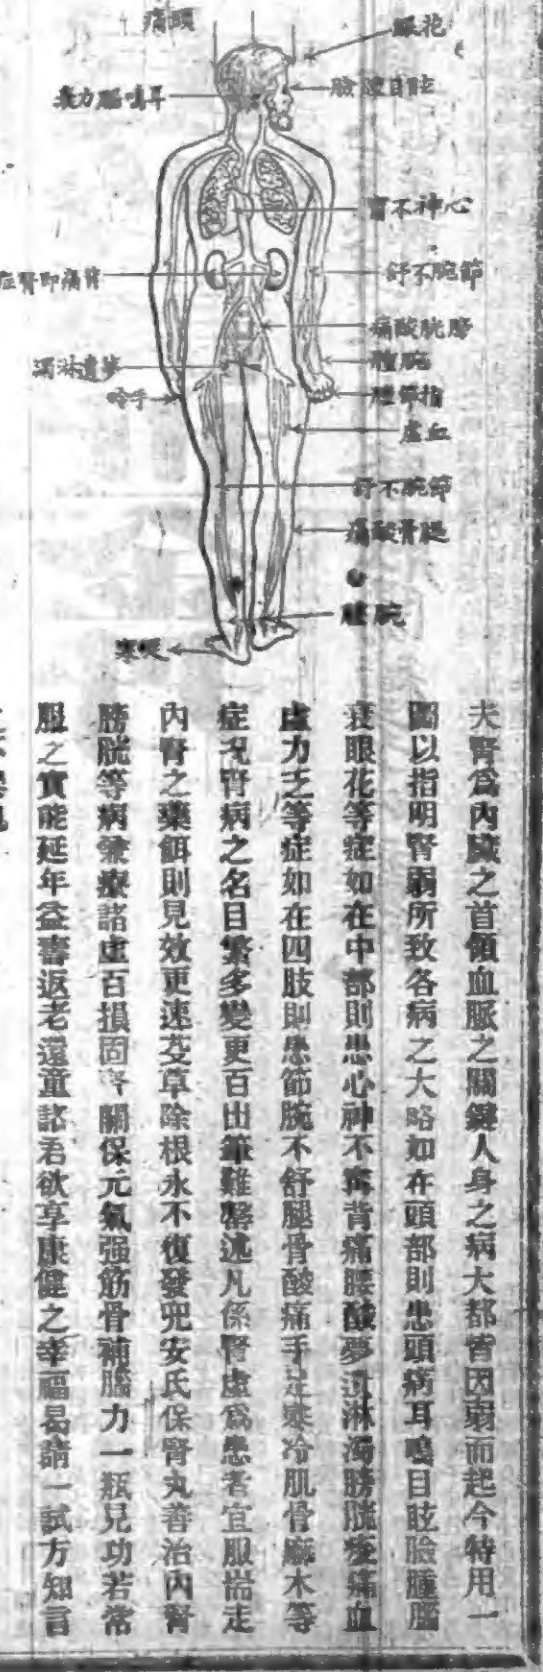 痛頭
眼花
衰力腦鳴耳
臉腫目眩
甯不神心
症腎即痛背
舒不腕節
痛酸胱膀
濁淋遺夢
腫腕
冷手
腫節指
虛血
舒不腕節
痛酸骨腿
腫腕
寒腿
夫腎爲內臟之首領血脈之關鍵人身之病大都皆因弱而起今特用一
圖以指明腎弱所致各病之大略如在頭部則患頭痛耳鳴目眩臉腫腦
衰眼花等症如在中部則患心神不甯背痛腰酸夢遺淋濁膀胱痠痛血
虛力乏等症如在四肢則患節腕不舒腿骨酸痛手足寒冷肌骨麻木等
症况腎病之名目繁多變更百出筆難罄述凡係腎虛爲患者宜服耑走
內腎之藥餌則見效更速芟草除根永不復發兜安氏保腎丸善治內腎
膀胱等病兼療諸虛百損固腎關保元氣强筋骨補腦力一瓶見功若常
服之實能延年益壽返老還童諸君欲享康健之幸福曷請一試方知言